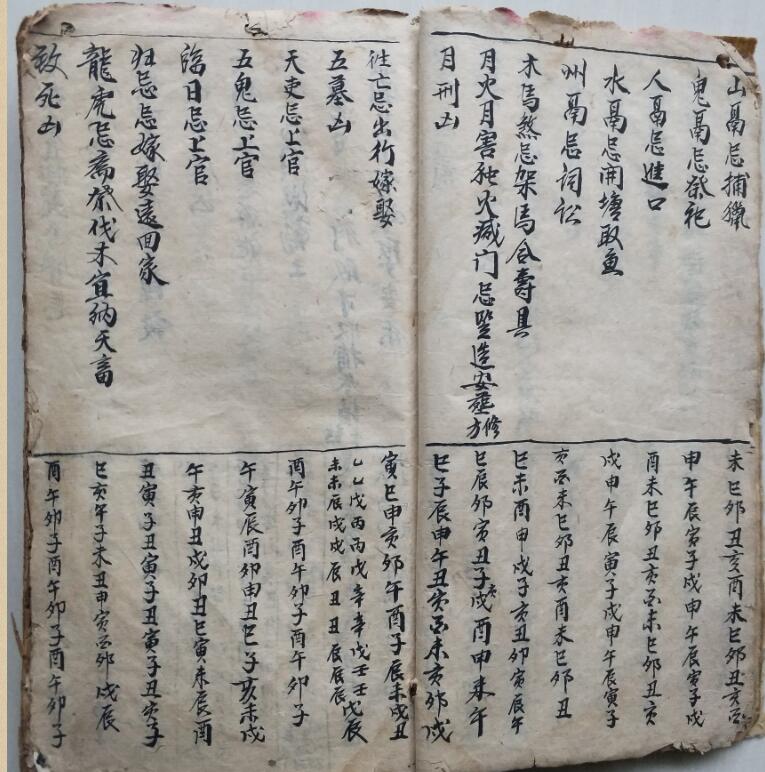 山鬲忌捕獵
未巳卯丑亥酉未巳卯丑亥酉
鬼鬲忌祭祀
申午辰寅子戌申午辰寅子戌
人鬲忌進口
酉未巳卯丑亥酉未巳卯丑亥
水鬲忌開塘取魚
戌申午辰寅子戌申午辰寅子
州鬲忌詞訟
亥酉未巳卯丑亥酉未巳卯丑
木馬煞忌架馬合壽具
巳未酉申戌子亥丑卯寅辰午
月火月害独火滅门忌竖造安葬修方
巳辰卯寅丑子亥戌酉申未午
月刑凶
巳子辰申午丑亥酉未亥卯戌
往亡忌出行嫁娶
寅巳申亥卯午酉子辰未戌丑
五墓凶
乙乙戊丙丙戊辛辛戊壬壬戊辰
未未辰戌戌辰丑丑辰辰辰
天吏忌上官
酉午卯子酉午卯子酉午卯子
五鬼忌上官
午寅辰酉卯申丑巳子亥未戌
臨日忌上官
午亥申丑戌卯丑巳寅未辰酉
归忌忌嫁娶遠回家
丑寅子丑寅子丑寅子丑寅子
龍虎忌斋醮伐木宜纳天畜
巳亥午子未丑申寅酉卯戌辰
致死凶
酉午卯子酉午卯子酉午卯子